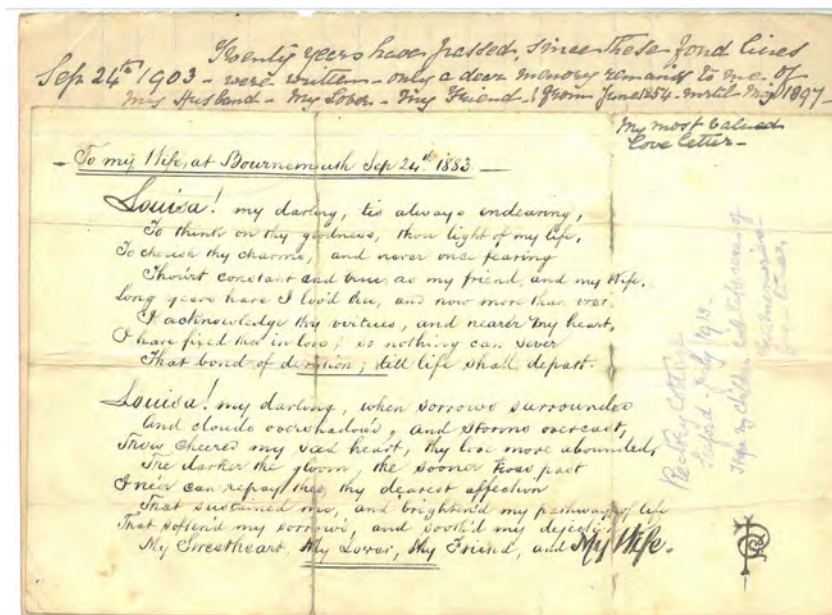 Twenty years have passed, since these fond lines
Sep 24th 1903 - were written - only a dear memory remains to me of
my Husband - My Lover - My Friend - from June 1854 - until May 1897 -
My most valued
Love letter -
- To my Wife, at Bournemouth Sep 24th 1883. -
Louisa! my darling, tis always endearing,
To think on thy goodness, thou light of my life,
To cherish thy charms, and never once fearing
Thou'rt constant and true, as my friend, and my Wife.
Long years have I lov'd thee, and now more than ever
I acknowledge thy virtues, and nearer my heart,
I have fixed thee in love; so nothing can sever
That bond of devotion; till life shall depart.
Louisa! my darling, when sorrows surrounded
And clouds overshadow'd, and storms overcast,
Thou cheered my sad heart, thy love more abounded,
The darker the gloom, the sooner twas past
I ne'er can repay thee, thy dearest affection
That sustained me, and brighten'd my pathway of life
That soften'd my sorrows, and sooth'd my dejection
My Sweetheart, My Lover, My Friend, and My Wife.
Rectory Cottage
Seaford - July 1913 -
I hope my children will take care of